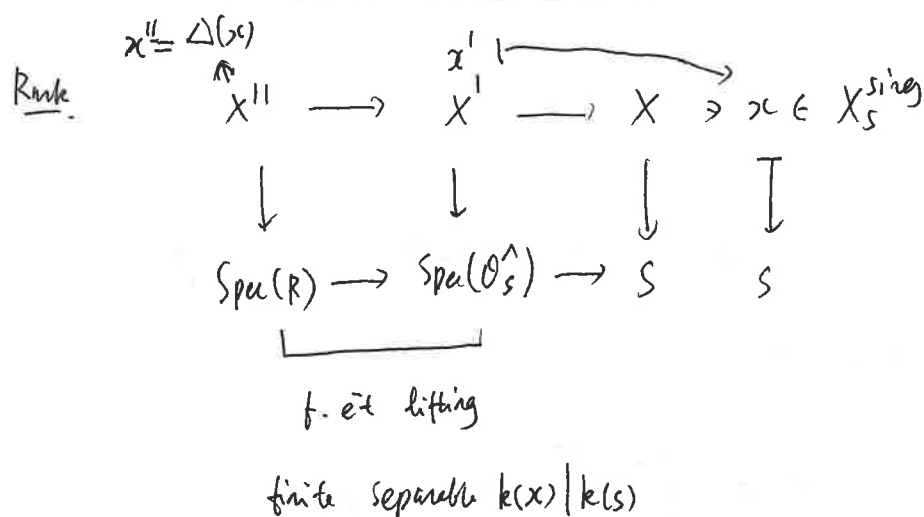 x'' = Δ(x)
x'
Rmk.
X'' → X' → X ∋ x ∈ X_s^sing
Spec(R) → Spec(O_s^∧) → S s
f. ét lifting
finite separable k(x)|k(s)